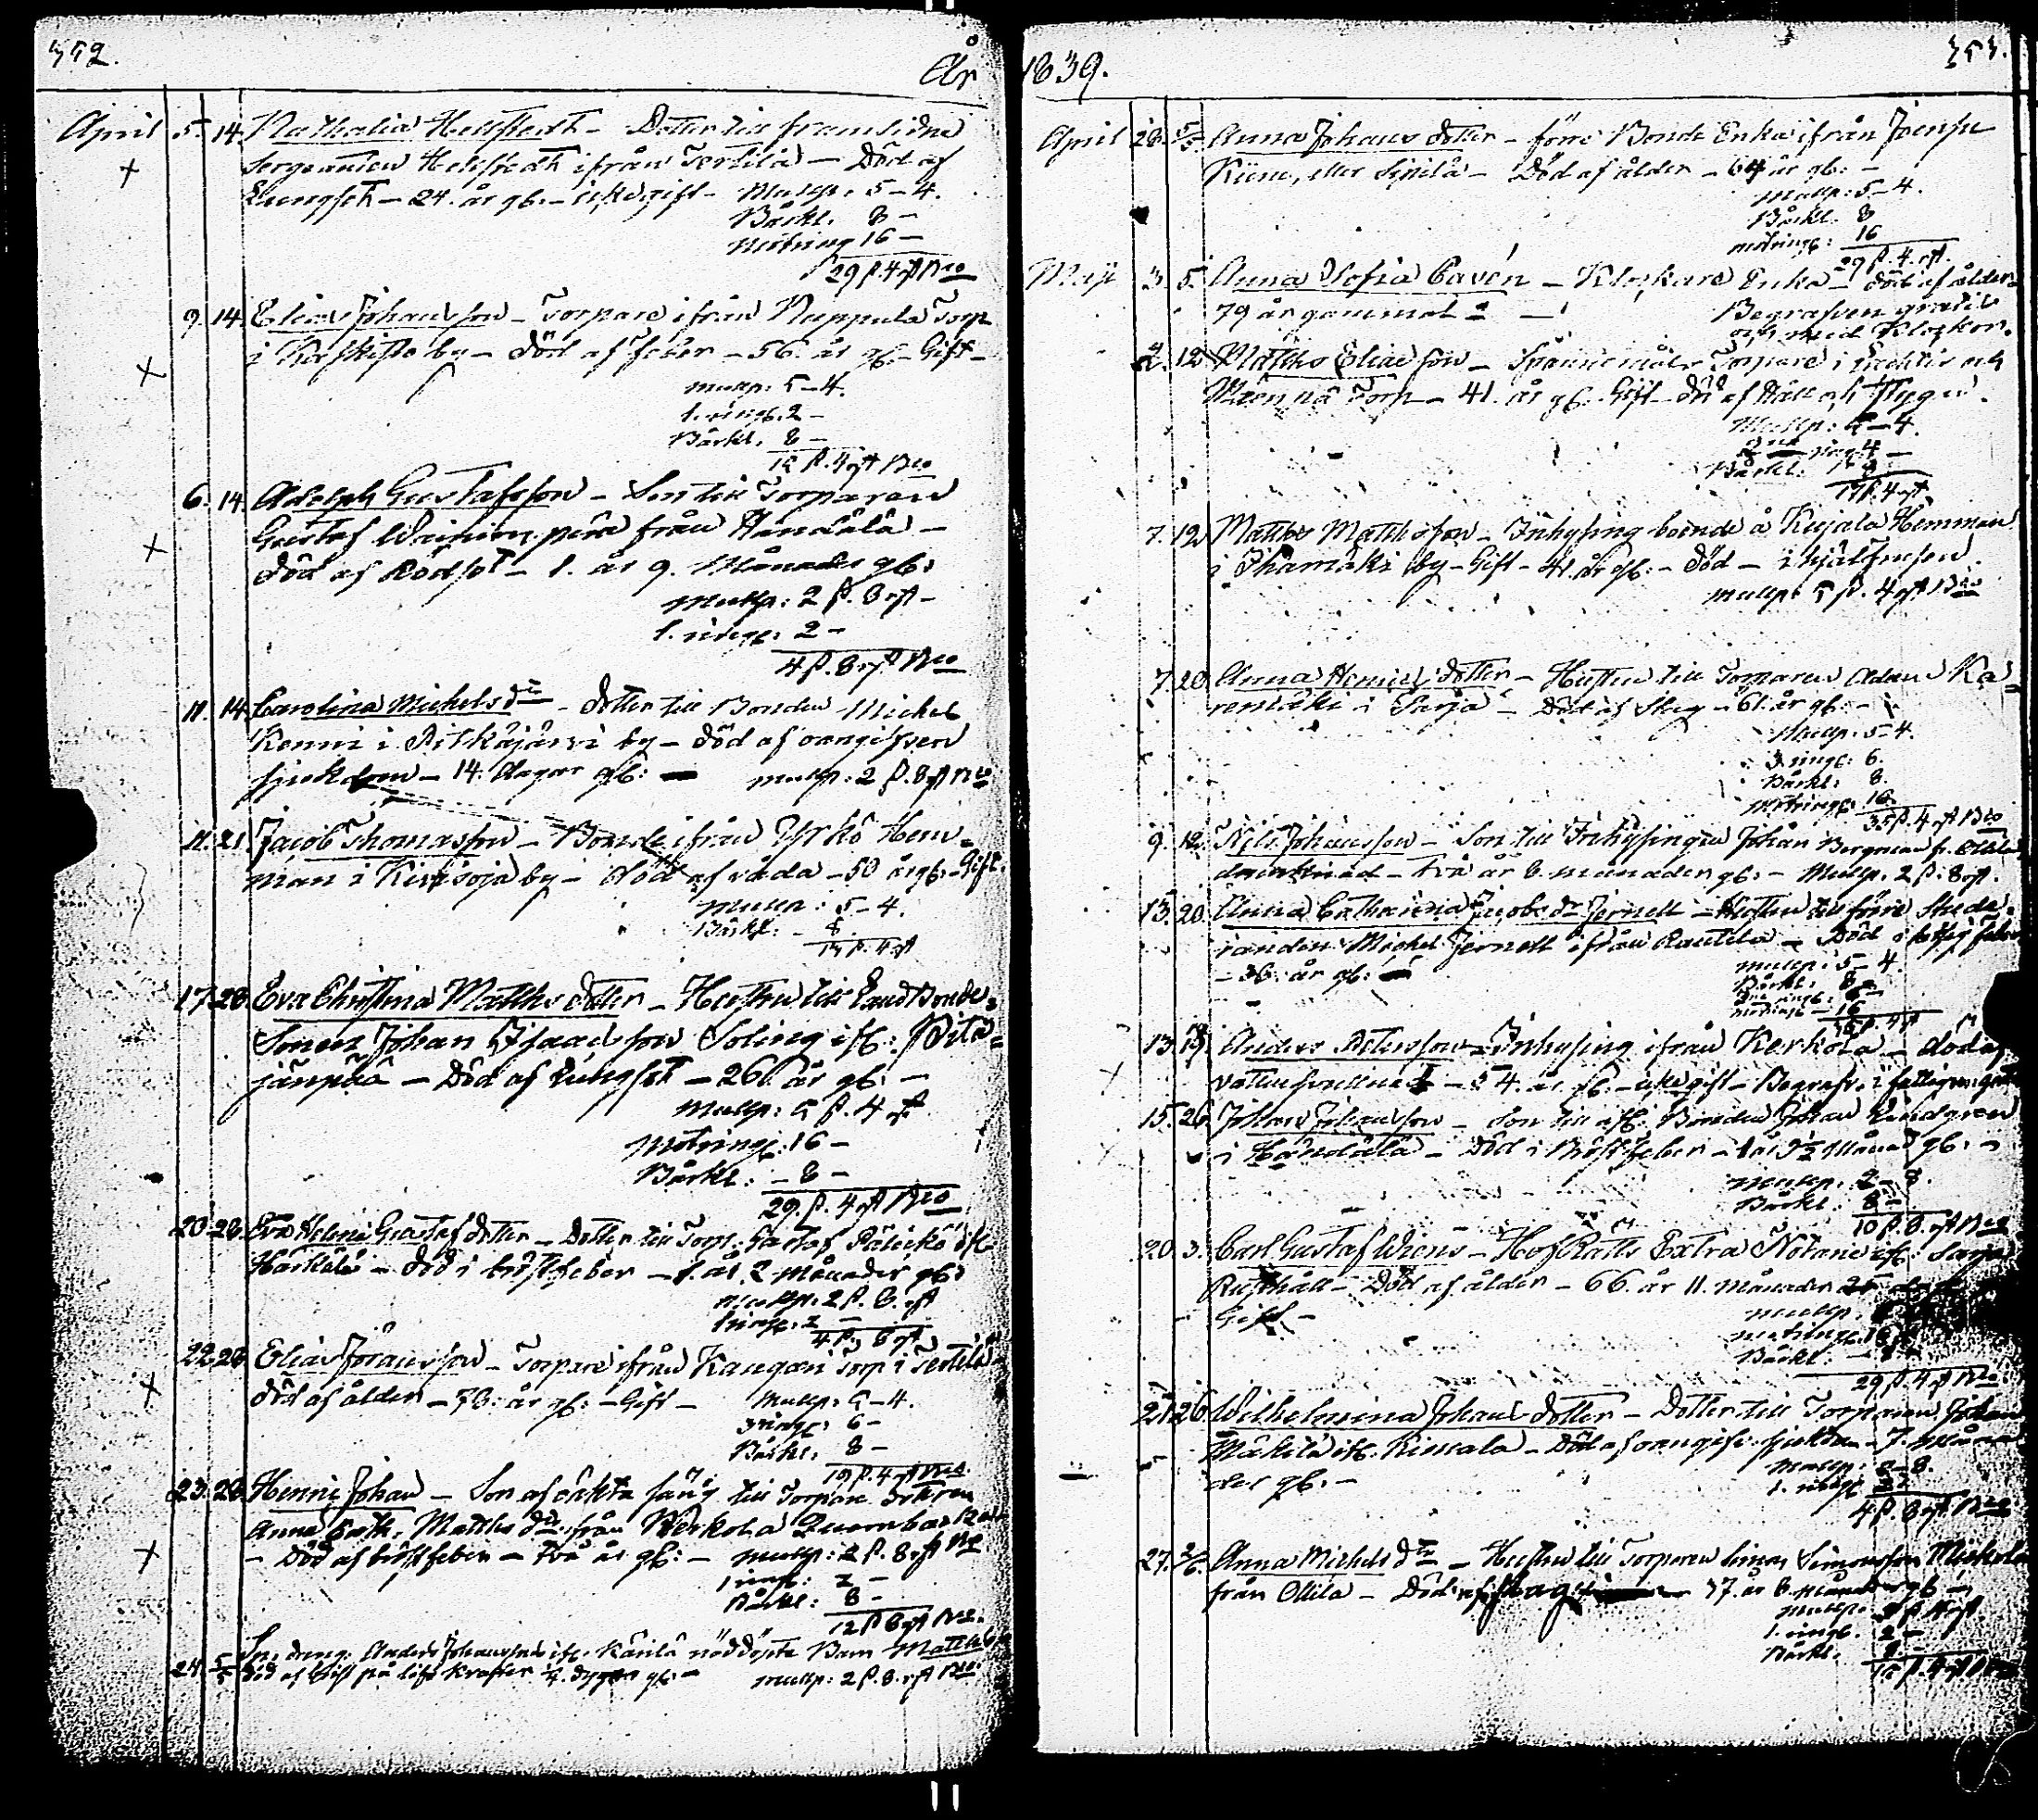 352.
År
April 5. 14. Nathalia Hellstedt - Dotter till framlidne
Sergeanten Hellstedt ifrån Tertilä - Död af
Lungsot - 24. år gl. - icke gift - Mullp: 5-4.
Bårkl. 8 -
Motring 16 -
29 β. 4 rst Bco
9. 14. Elias Johansson - Torpare ifrån Nuppula Torp
i Kaskisto by - Död af feber - 56. år gl. - Gift -
mullp: 5-4.
1. ringl. 2 -
Bårkl. 8 -
15 β. 4 rst Bco
6. 14. Adolph Gustafsson - Son till Torparen
Gustaf Wainion från Handälä -
död af Rödsot - 1. år 9. Månader gl:
Mullp: 2 β. 8 rst -
1. ringl: 2 -
4 β. 8 rst Bco
11. 14. Carolina Michelsdr - dotter till Bonden Michel
Kenni i Pitkäjärvi by - död af oangifven
sjukdom - 14. dagar gl: - mullp: 2 β. 8 rst Bco
11. 21. Jacob Thomasson - Bonde ifrån Yrkö Hem-
man i Kivisoja by - död af våda - 50 år gl: - Gift.
Mullp: 5-4.
Bårkl: - 8
13 β. 4 rst
17. 28. Eva Christina Matthsdotter - Hustru till Landbonde-
Sonen Johan Isaacsson Soling ifr: Pitkä-
jänpää - Död af Lungsot - 26. år gl: -
Mullp: 5 β. 4 rst
Motringl: 16 -
Bårkl: - 8 -
29. β. 4 rst Bco
20. 28. Eva Helena Gustafdotter - Dotter till Torp. Gustaf Pälickö ifr
Härkälä - död i bröstfeber - 1. år 2 Månader gl:
Mullp. 2 β. 8. rst
1 ringl: 2 -
4 β. 8 rst
22. 28. Elias Göransson - Torpare ifrån Kangan Torp i Tertilä
död af ålder - 58. år gl: - Gift - Mullp: 5-4.
3 ringl: 6 -
Bårkl. 8 -
19 β. 4 rst Bco.
23. 28. Henric Johan - Son af oäkta säng till Torpare dottren
Anna Cath. Matthsdr från Kerkola
- Död af bröstfeber - två år gl: - mullp: 2 β. 8 rst Bco
1 ringl: 2 -
Bårkl: 8 -
12 β 8 rst Bco.
Sp. dreng. Anders Johanssons ifr. Känilä nöddöpta Barn Matths
24. 5/5 död af brist på lifs krafter ½ dygn gl: - mullp: 2 β. 8. rst Bco.
1839.
353.
April 28. 5/5 Anna Johansdotter - förre Bonde Enka ifrån Joensu
eller Sipilä - Död af ålder - 64 år gl: -
Mullp: 5-4.
Bårkl. 8
motringl: 16
29 β. 4 rst.
Maji 3. 5. Anna Sofia Cavén - Klockare Enka - död af ålder
79 år gammal - Begrafven gratis
och med Klockor.
4. 12. Matths Eliasson - Spannemåls Torpare i
Torp - 41. år gl. Gift - död af Håll och Styng.
Mullp: 5-4.
ring. 4 -
Bårkl. 8
17 β. 4 rst
7. 12. Matths Matthsson - Inhysing boende å Kujala Hemman
i Ihamäki by - Gift - 41. år gl: - Död -
mullp: 5 β. 4 rst Bco
7. 20. Anna Henricsdotter - Hustru till Torparen Adam Ka-
remäki i Sarja - Död af Slag - 61. år gl: -
Mullp. 5-4.
3 ringl: 6.
Bårkl: 8.
Motringl: 16.
35 β. 4 rst Bco
9. 12. Nils Johansson - Son till Inhysingen Johan Bergman fr. Ollila
drunknad - två år 8. månader gl: - Mullp. 2 β. 8 rst.
13. 20. Anna Catharina Jacobsdr Jernell - Hustru till förre
Michel Jernell ifrån Rautila - Död i
- 36. år gl: - mullp: 5-4.
Bårkl: 8 -
ringl: 6 -
motringl - 16
35 β. 4 rst
13. 19. Anders Petersson - Inhysing ifrån Kerkola - död af
vattusvullnad - 54. år gl. - icke gift - Begrafv. i fattigas graf
15. 26. Johan Johansson - Son till afl. Bonden Johan Lindgren
i Händälä - Död i Bröstfeber - 1 år 5½ Månad gl: -
Mullp. 2-8.
Bårkl: 8 -
10 β. 8. rst Bco
20. 3. Carl Gustaf Wiens - HofRätts Extra Notarie ifr. Sarja
Rusthåll - Död af ålder - 66. år 11. Månader 25
Gift - Mullp.
motringl. 16
Bårkl: - 8
29 β. 4 rst Bco.
21. 26. Wilhelmina Johansdotter - Dotter till Torparen Johan
Mäkilä ifr. Kimala - Död af oangifv. sjukdom - 7. måna-
der gl: - Mullp: 2-8.
1. ringl. 2
4 β. 8 rst Bco
27. 2/6. Anna Michelsdr - Hustru till Torparen Simon Simonsson
från Ollila - Död af slag 37. år 8 Månader gl -
Mullp.
1. ringl. 2 -
Bårkl. 8 -
15 β. 4 rst Bco